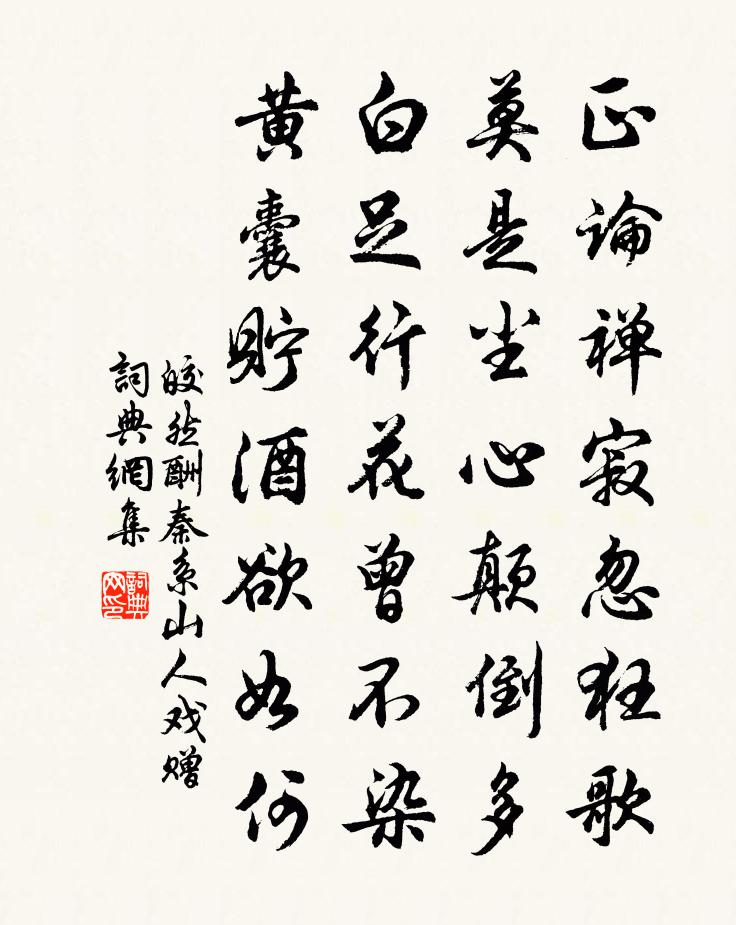 正論禅寂忽狂歌
莫是尘心顛倒多
白足行花曾不染
黃囊貯酒欲如何
皎然酬秦系山人戏赠
詞典網集
詞典网印